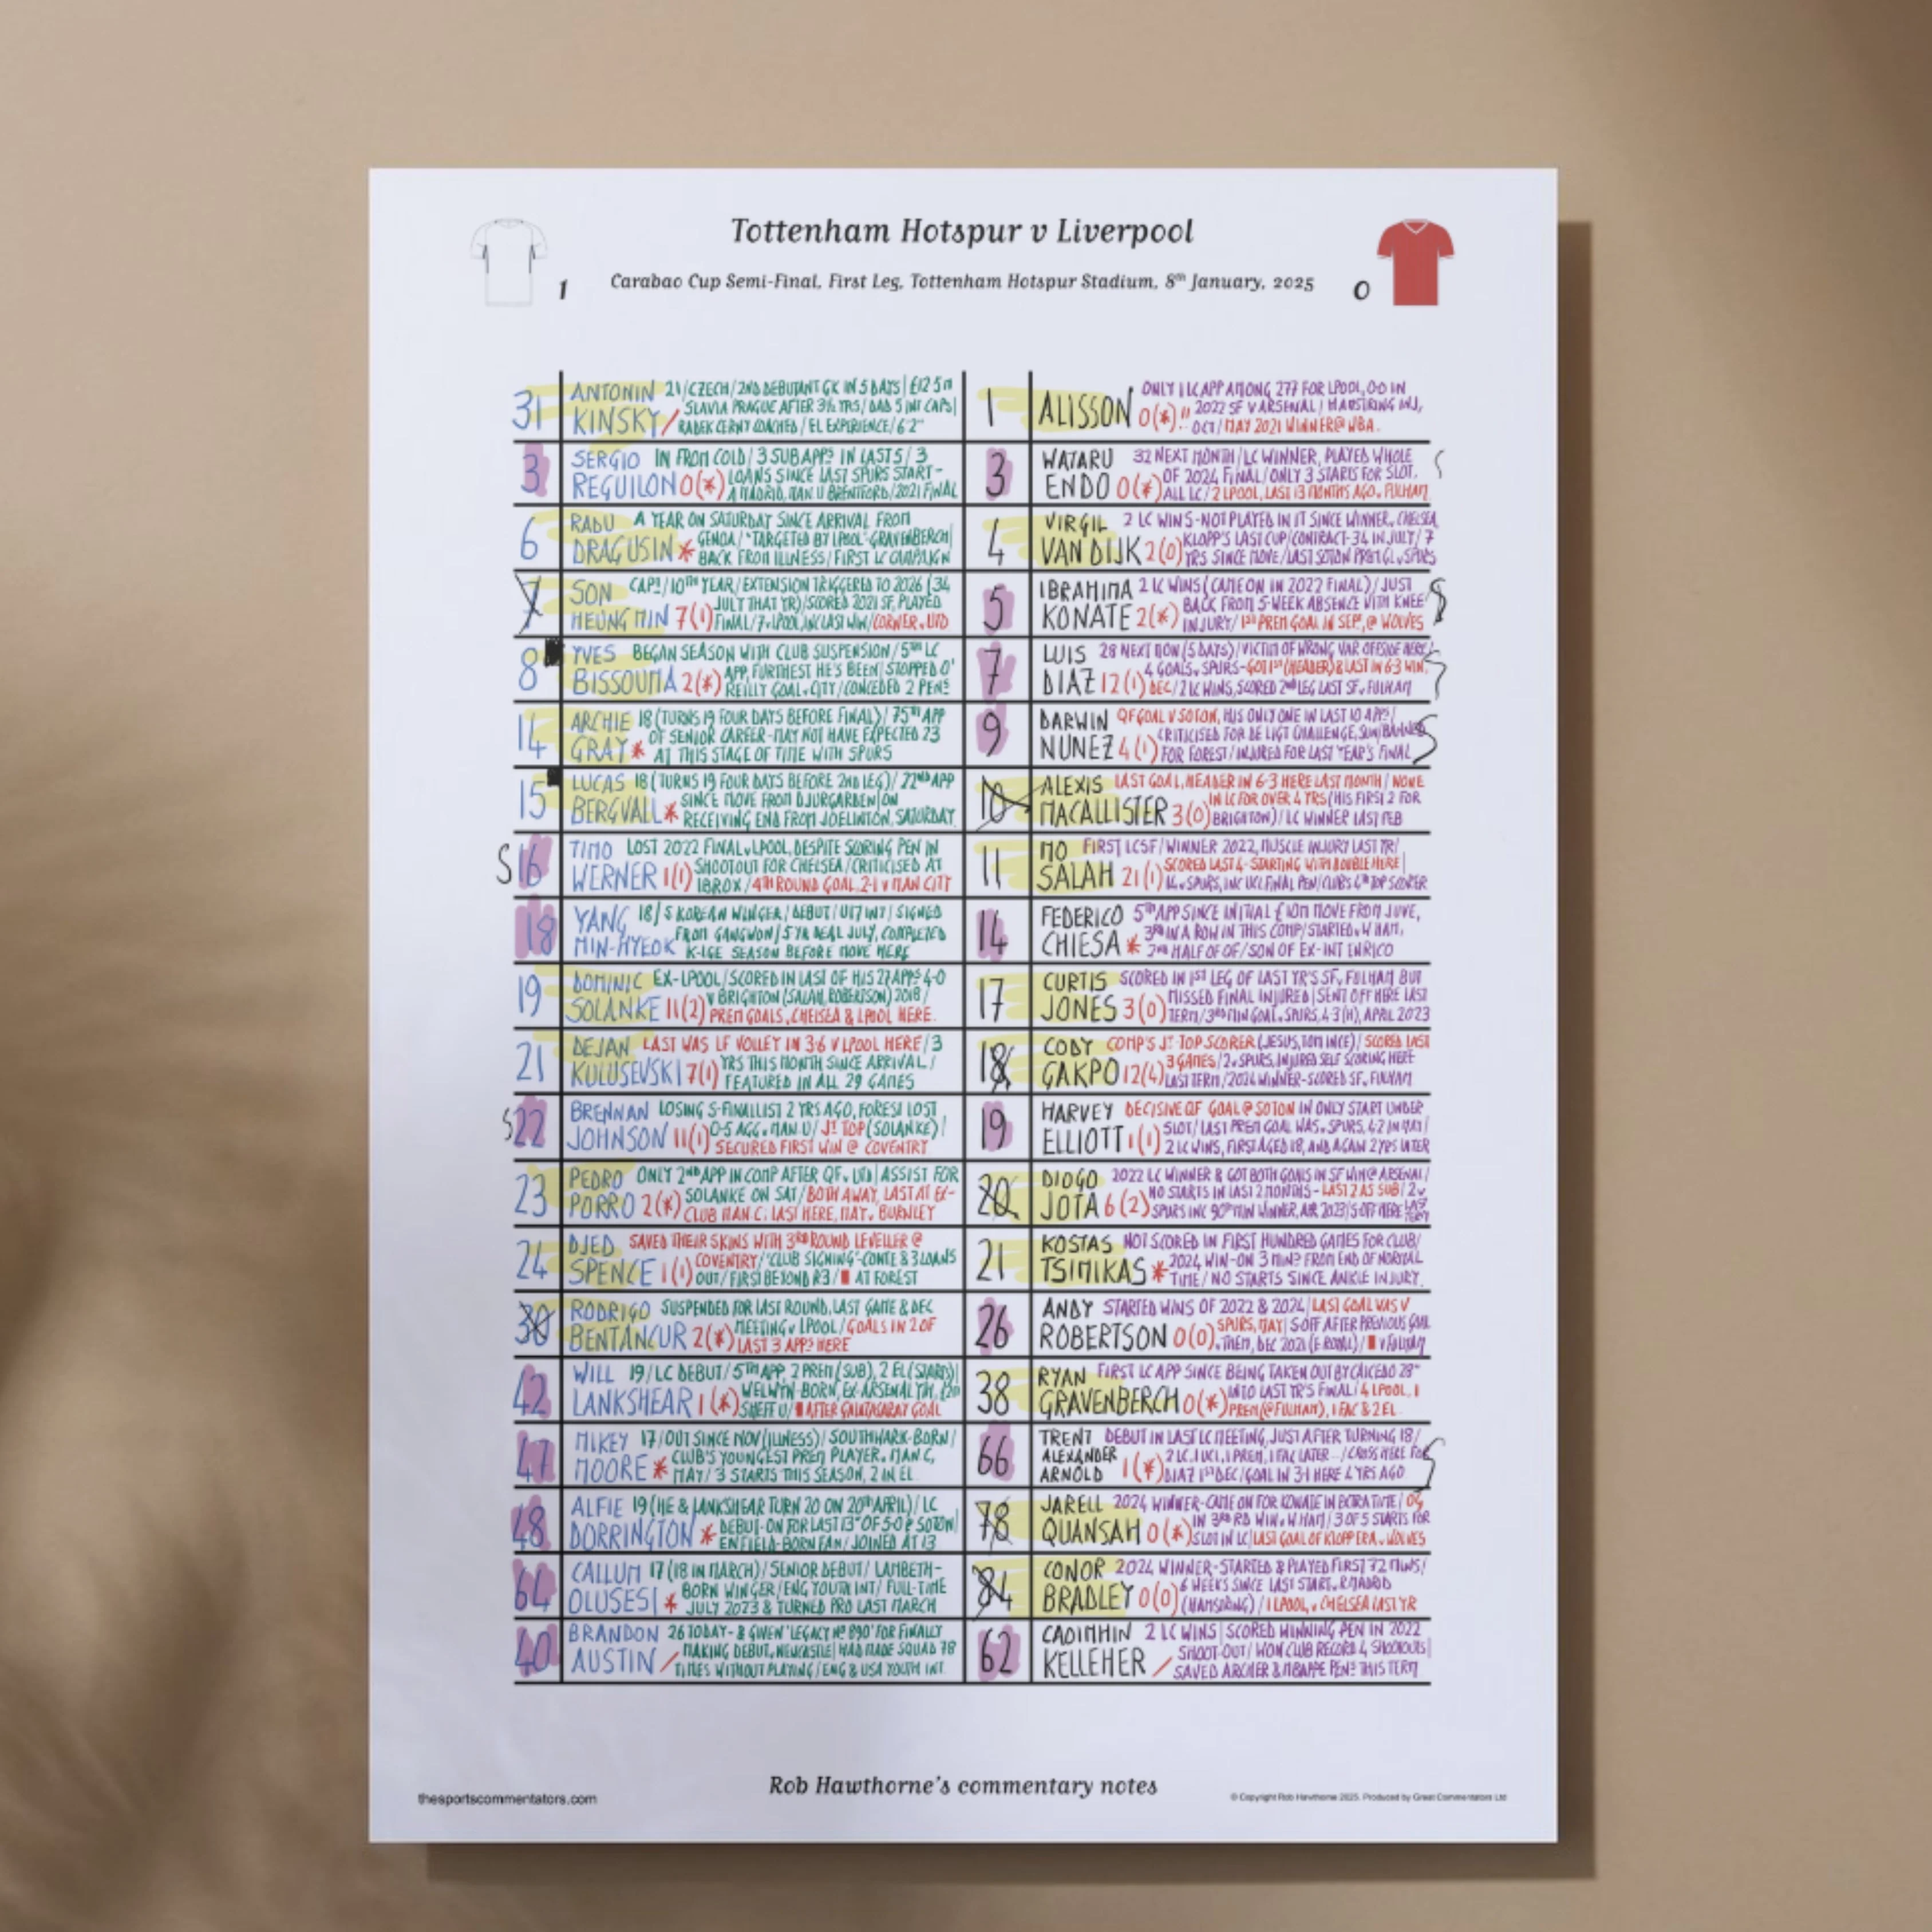 Tottenham Hotspur v Liverpool
1 Carabao Cup Semi-Final, First Leg, Tottenham Hotspur Stadium, 8th January, 2025 0
31 ANTONIN KINSKY / 21/CZECH/2ND DEBUTANT GK IN 5 DAYS/£12.5M
SLAVIA PRAGUE AFTER 3½ YRS/DAD 5 INT CAPS/
RADEK CERNY COACHED/EL EXPERIENCE/6'2"
3 SERGIO REGUILON 0(*) IN FROM COLD/3 SUB APPS IN LAST 5/3
LOANS SINCE LAST SPURS START-
A MADRID, MAN U BRENTFORD/2021 FINAL
6 RADU DRAGUSIN * A YEAR ON SATURDAY SINCE ARRIVAL FROM
GENOA/"TARGETED BY LPOOL"-GRAVENBERCH/
BACK FROM ILLNESS/FIRST LC CAMPAIGN
7 SON HEUNG MIN 7(1) CAPT/10TH YEAR/EXTENSION TRIGGERED TO 2026 (34
JULY THAT YR)/SCORED 2021 SF, PLAYED
FINAL/7 v LPOOL, INC LAST WIN/CORNER v UTD
8 YVES BISSOUMA 2(*) BEGAN SEASON WITH CLUB SUSPENSION/5TH LC
APP, FURTHEST HE'S BEEN/STOPPED O'
REILLY GOAL v CITY/CONCEDED 2 PENS
14 ARCHIE GRAY * 18 (TURNS 19 FOUR DAYS BEFORE FINAL)/75TH APP
OF SENIOR CAREER-MAY NOT HAVE EXPECTED 23
AT THIS STAGE OF TIME WITH SPURS
15 LUCAS BERGVALL * 18 (TURNS 19 FOUR DAYS BEFORE 2ND LEG)/22ND APP
SINCE MOVE FROM DJURGARDEN/ON
RECEIVING END FROM JOELINTON, SATURDAY
S 16 TIMO WERNER 1(1) LOST 2022 FINAL v LPOOL, DESPITE SCORING PEN IN
SHOOTOUT FOR CHELSEA/CRITICISED AT
IBROX/4TH ROUND GOAL, 2-1 v MAN CITY
18 YANG MIN-HYEOK 18/S KOREAN WINGER/DEBUT/U17 INT/SIGNED
FROM GANGWON/5 YR DEAL JULY, COMPLETED
K-LGE SEASON BEFORE MOVE HERE
19 DOMINIC SOLANKE 11(2) EX-LPOOL/SCORED IN LAST OF HIS 27 APPS 4-0
v BRIGHTON (SALAH, ROBERTSON) 2018/
PREM GOALS, CHELSEA & LPOOL HERE.
21 DEJAN KULUSEVSKI 7(1) LAST WAS LF VOLLEY IN 3-6 v LPOOL HERE/3
YRS THIS MONTH SINCE ARRIVAL/
FEATURED IN ALL 29 GAMES
S 22 BRENNAN JOHNSON 11(1) LOSING S-FINALLIST 2 YRS AGO, FOREST LOST
0-5 AGG v MAN U/JT TOP (SOLANKE)/
SECURED FIRST WIN @ COVENTRY
23 PEDRO PORRO 2(*) ONLY 2ND APP IN COMP AFTER QF v UTD/ASSIST FOR
SOLANKE ON SAT/BOTH AWAY, LAST AT EX-
CLUB MAN C. LAST HERE, MAY v BURNLEY
24 DJED SPENCE 1(1) SAVED THEIR SKINS WITH 3RD ROUND LEVELLER @
COVENTRY/"CLUB SIGNING"-CONTE & 3 LOANS
OUT/FIRST BEYOND R3/ AT FOREST
30 RODRIGO BENTANCUR 2(*) SUSPENDED FOR LAST ROUND, LAST GAME & DEC
MEETING v LPOOL/GOALS IN 2 OF
LAST 3 APPS HERE
42 WILL LANKSHEAR 1(*) 19/LC DEBUT/5TH APP, 2 PREM (SUB), 2 EL (STARTS)/
WELWYN-BORN, EX-ARSENAL YTH,
SHEFF U/ AFTER GALATASARAY GOAL
47 MIKEY MOORE * 17/OUT SINCE NOV (ILLNESS)/SOUTHWARK-BORN/
CLUB'S YOUNGEST PREM PLAYER v MAN C,
MAY/3 STARTS THIS SEASON, 2 IN EL.
48 ALFIE DORRINGTON * 19 (HE & LANKSHEAR TURN 20 ON 20TH APRIL)/LC
DEBUT-ON FOR LAST 13" OF 5-0 @ SOTON/
ENFIELD-BORN FAN/JOINED AT 13
64 CALLUM OLUSESI * 17 (18 IN MARCH)/SENIOR DEBUT/LAMBETH-
BORN WINGER/ENG YOUTH INT/FULL-TIME
JULY 2023 & TURNED PRO LAST MARCH
40 BRANDON AUSTIN / 26 TODAY-& GIVEN 'LEGACY Nº 890' FOR FINALLY
MAKING DEBUT, NEWCASTLE/HAD MADE SQUAD 78
TIMES WITHOUT PLAYING/ENG & USA YOUTH INT.
1 ALISSON 0(*)!! ONLY 1 LC APP AMONG 277 FOR LPOOL, 0-0 IN
2022 SF v ARSENAL/HAMSTRING INJ,
OCT/MAY 2021 WINNER @ WBA.
3 WATARU ENDO 0(*) 32 NEXT MONTH/LC WINNER, PLAYED WHOLE
OF 2024 FINAL/ONLY 3 STARTS FOR SLOT,
ALL LC/2 LPOOL, LAST 13 MONTHS AGO v FULHAM
4 VIRGIL VAN DIJK 2(0) 2 LC WINS-NOT PLAYED IN IT SINCE WINNER v CHELSEA,
KLOPP'S LAST CUP/CONTRACT-34 IN JULY/7
YRS SINCE MOVE/LAST SOTON PREM GL v SPURS
5 IBRAHIMA KONATE 2(*) 2 LC WINS (CAME ON IN 2022 FINAL)/JUST
BACK FROM 5-WEEK ABSENCE WITH KNEE
INJURY/1ST PREM GOAL IN SEP, @ WOLVES
7 LUIS DIAZ 12(1) 28 NEXT MON (5 DAYS)/VICTIM OF WRONG VAR OFFSIDE HERE/
4 GOALS v SPURS-GOT 1ST (HEADER) & LAST IN 6-3 WIN,
DEC/2 LC WINS, SCORED 2ND LEG LAST SF v FULHAM
9 DARWIN NUNEZ 4(1) QF GOAL V SOTON, HIS ONLY ONE IN LAST 10 APPS/
CRITICISED FOR DE LIGT CHALLENGE, SUN/BANNED
FOR FOREST/INJURED FOR LAST YEAR'S FINAL S
10 ALEXIS MACALLISTER 3(0) LAST GOAL, HEADER IN 6-3 HERE LAST MONTH/NONE
IN LC FOR OVER 4 YRS (HIS FIRST 2 FOR
BRIGHTON)/LC WINNER LAST FEB
11 MO SALAH 21(1) FIRST LCSF/WINNER 2022, MUSCLE INJURY LAST YR/
SCORED LAST 4-STARTING WITH DOUBLE HERE/
14 v SPURS, INC UCL FINAL PEN/CLUB'S 4TH TOP SCORER
14 FEDERICO CHIESA * 5TH APP SINCE INITIAL £10M MOVE FROM JUVE,
3RD IN A ROW IN THIS COMP/STARTED v W HAM,
2ND HALF OF QF/SON OF EX-INT ENRICO
17 CURTIS JONES 3(0) SCORED IN 1ST LEG OF LAST YR'S SF v FULHAM BUT
MISSED FINAL INJURED/SENT OFF HERE LAST
TERM/3RD MIN GOAL v SPURS, 4-3 (H), APRIL 2023
18 CODY GAKPO 12(4) COMP'S JT TOP SCORER (JESUS, TOM INCE)/SCORED LAST
3 GAMES/2 v SPURS, INJURED SELF SCORING HERE
LAST TERM/2024 WINNER-SCORED SF v FULHAM
19 HARVEY ELLIOTT 1(1) DECISIVE QF GOAL @ SOTON IN ONLY START UNDER
SLOT/LAST PREM GOAL WAS v SPURS, 4-2 IN MAY/
2 LC WINS, FIRST AGED 18, AND AGAIN 2 YRS LATER
20 DIOGO JOTA 6(2) 2022 LC WINNER & GOT BOTH GOALS IN SF WIN @ ARSENAL/
NO STARTS IN LAST 2 MONTHS-LAST 2 AS SUB/2 v
SPURS INC 90TH MIN WINNER, APR 2023/S OFF HERE LAST TERM
21 KOSTAS TSIMIKAS * NOT SCORED IN FIRST HUNDRED GAMES FOR CLUB/
2024 WIN-ON 3 MINS FROM END OF NORMAL
TIME/NO STARTS SINCE ANKLE INJURY.
26 ANDY ROBERTSON 0(0) STARTED WINS OF 2022 & 2024/LAST GOAL WAS V
SPURS, MAY/S OFF AFTER PREVIOUS GOAL
v THEM, DEC 2021 (E ROYAL)/ v FULHAM
38 RYAN GRAVENBERCH 0(*) FIRST LC APP SINCE BEING TAKEN OUT BY CAICEDO 28"
INTO LAST YR'S FINAL/4 LPOOL, 1
PREM (@ FULHAM), 1 FAC & 2 EL.
66 TRENT ALEXANDER ARNOLD 1(*) DEBUT IN LAST LC MEETING, JUST AFTER TURNING 18/
2 LC, 1 UCL, 1 PREM, 1 FAC LATER.../CROSS HERE FOR
DIAZ 1ST DEC/GOAL IN 3-1 HERE 4 YRS AGO S
78 JARELL QUANSAH 0(*) 2024 WINNER-CAME ON FOR KONATE IN EXTRA TIME/OG
IN 3RD RD WIN v W HAM/3 OF 5 STARTS FOR
SLOT IN LC/LAST GOAL OF KLOPP ERA v WOLVES
84 CONOR BRADLEY 0(0) 2024 WINNER-STARTED & PLAYED FIRST 72 MINS/
6 WEEKS SINCE LAST START v R MADRID
(HAMSTRING)/1 LPOOL, v CHELSEA LAST YR
62 CAOIMHIN KELLEHER / 2 LC WINS/SCORED WINNING PEN IN 2022
SHOOT-OUT/WON CLUB RECORD 4 SHOOTOUTS/
SAVED ARCHER & MBAPPE PENS THIS TERM
Rob Hawthorne's commentary notes
thesportscommentators.com
© Copyright Rob Hawthorne 2025. Produced by Great Commentators Ltd